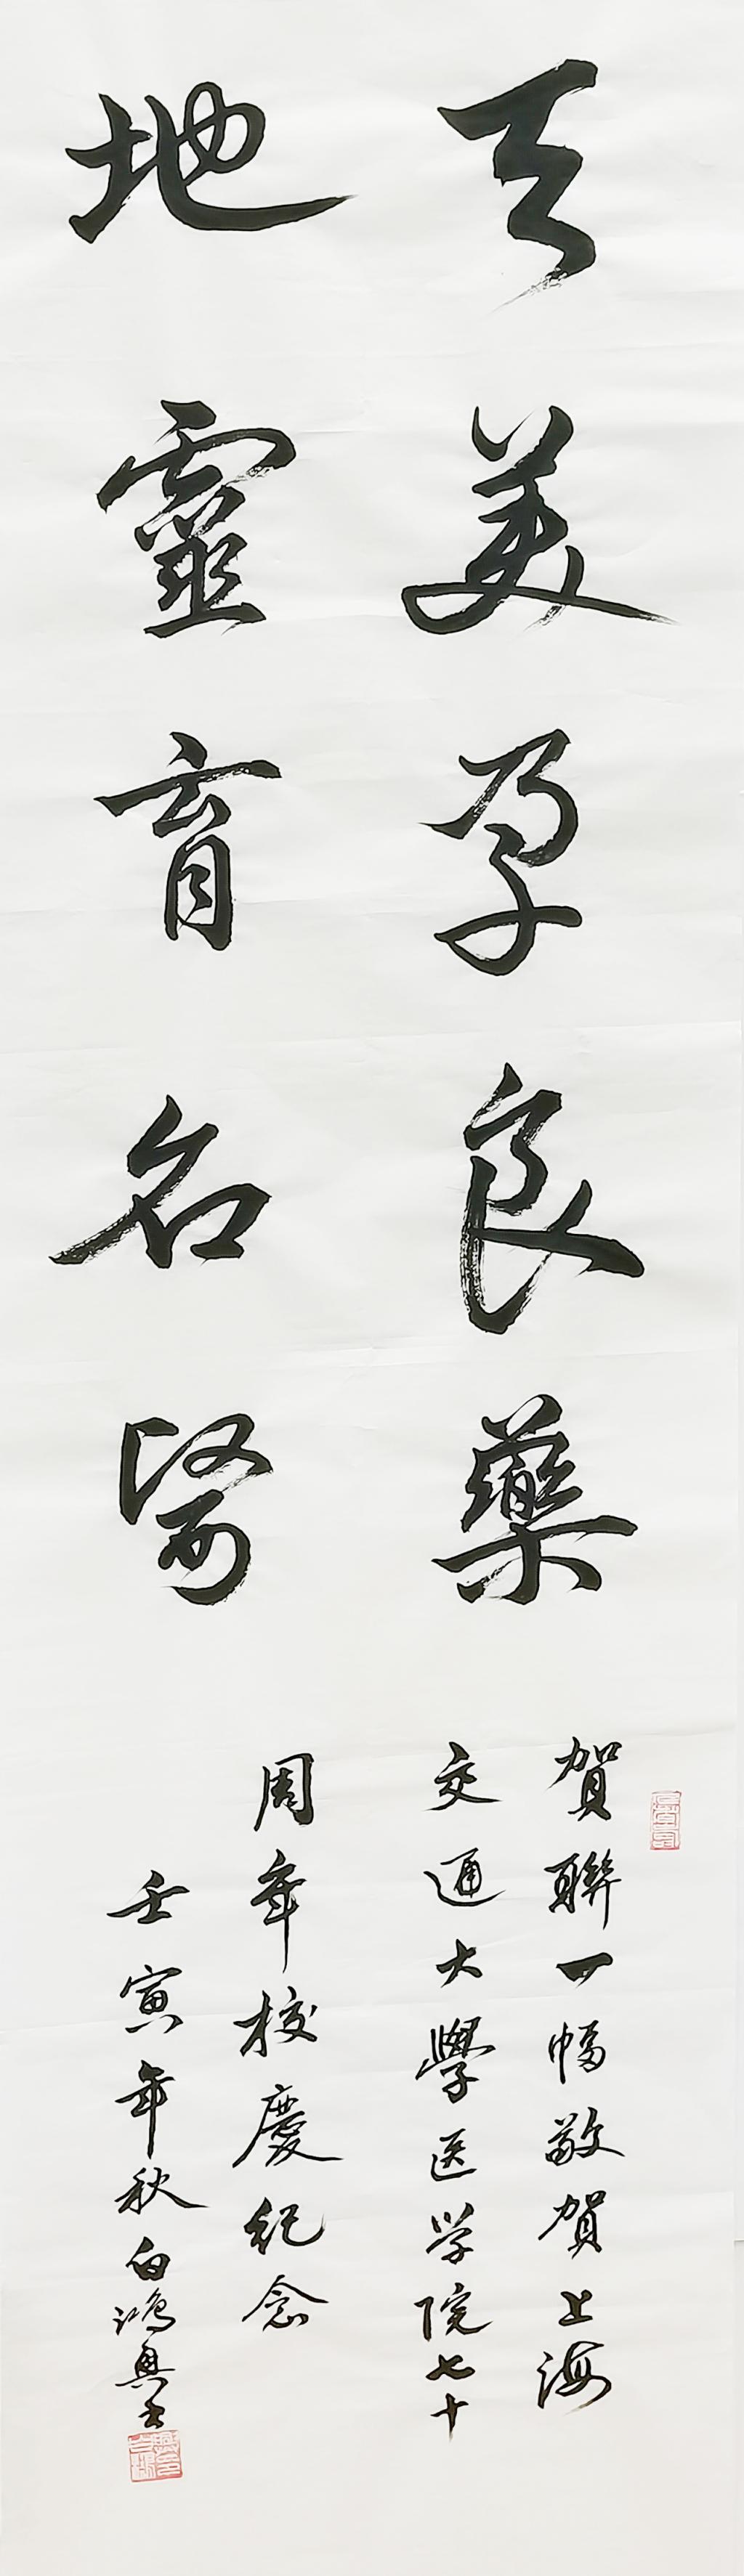 天美孕良藥
地靈育名醫
賀聯一幅敬賀上海
交通大學医学院七十
周年校慶纪念
壬寅年秋白鴻真書